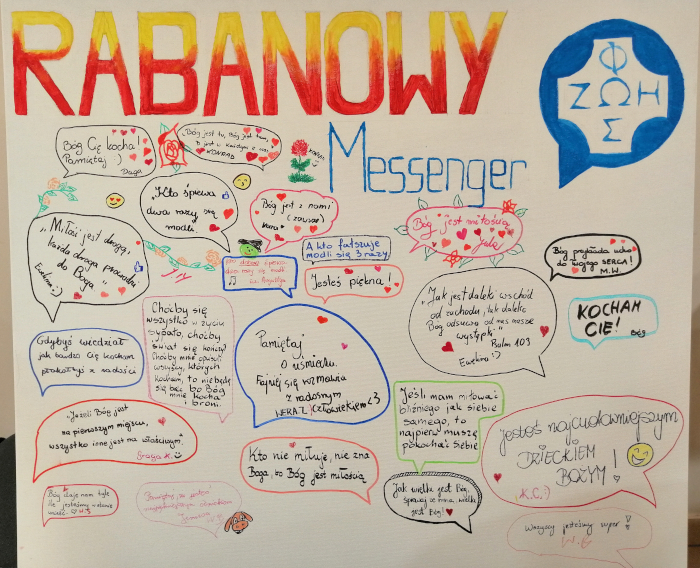 RABANOWY
Messenger
Φ
ΖΩΗ
Σ
Bóg Cię kocha!
Pamiętaj :)
Daga
Bóg jest tu, Bóg jest tam,
Bóg jest w każdym z nas
KONRAD
"Kto śpiewa
dwa razy się
modli.
Bóg jest z nami
(zawsze)
Bóg jest miłością
Jula
"Miłość jest drogą,
każda droga prowadzi
do Boga"
Ewelina :)
A kto fałszuje
modli się 3 razy
Kto dobrze śpiewa
dwa razy się modli
Jesteś piękna!
Bóg przykłada ucho
do Twojego SERCA!
M.W.
"Jak jest daleko wschód
od zachodu, tak daleko
Bóg odsuwa od nas nasze
występki"
Psalm 103
Ewelina :)
KOCHAM
CIĘ!
Bóg
Gdybyś wiedział
jak bardzo Cię kocham
płakałbyś z radości
Choćby się
wszystko w życiu
sypało, choćby
świat się kończył
Choćby mnie opuścili
wszyscy, których
kocham, to nie będę
się bać bo Bóg
mnie kocha
i broni.
Pamiętaj
o uśmiechu.
Fajniej się rozmawia
z radosnym
człowiekiem <3
Jeśli mam miłować
bliźniego jak siebie
samego, to
najpierw muszę
pokochać siebie
"Jeżeli Bóg jest
na pierwszym miejscu,
wszystko inne jest na właściwym"
Gaga K.
Kto nie miłuje, nie zna
Boga, bo Bóg jest miłością
Jesteś najcudowniejszym
DZIECKIEM
BOŻYM!
K.C. :)
Jak wielki jest Bóg,
śpiewaj ze mną, wielki
jest Bóg!
Bóg daje nam tyle
ile jesteśmy w stanie
unieść
Pamiętaj, że jesteś
Wszyscy jesteśmy super